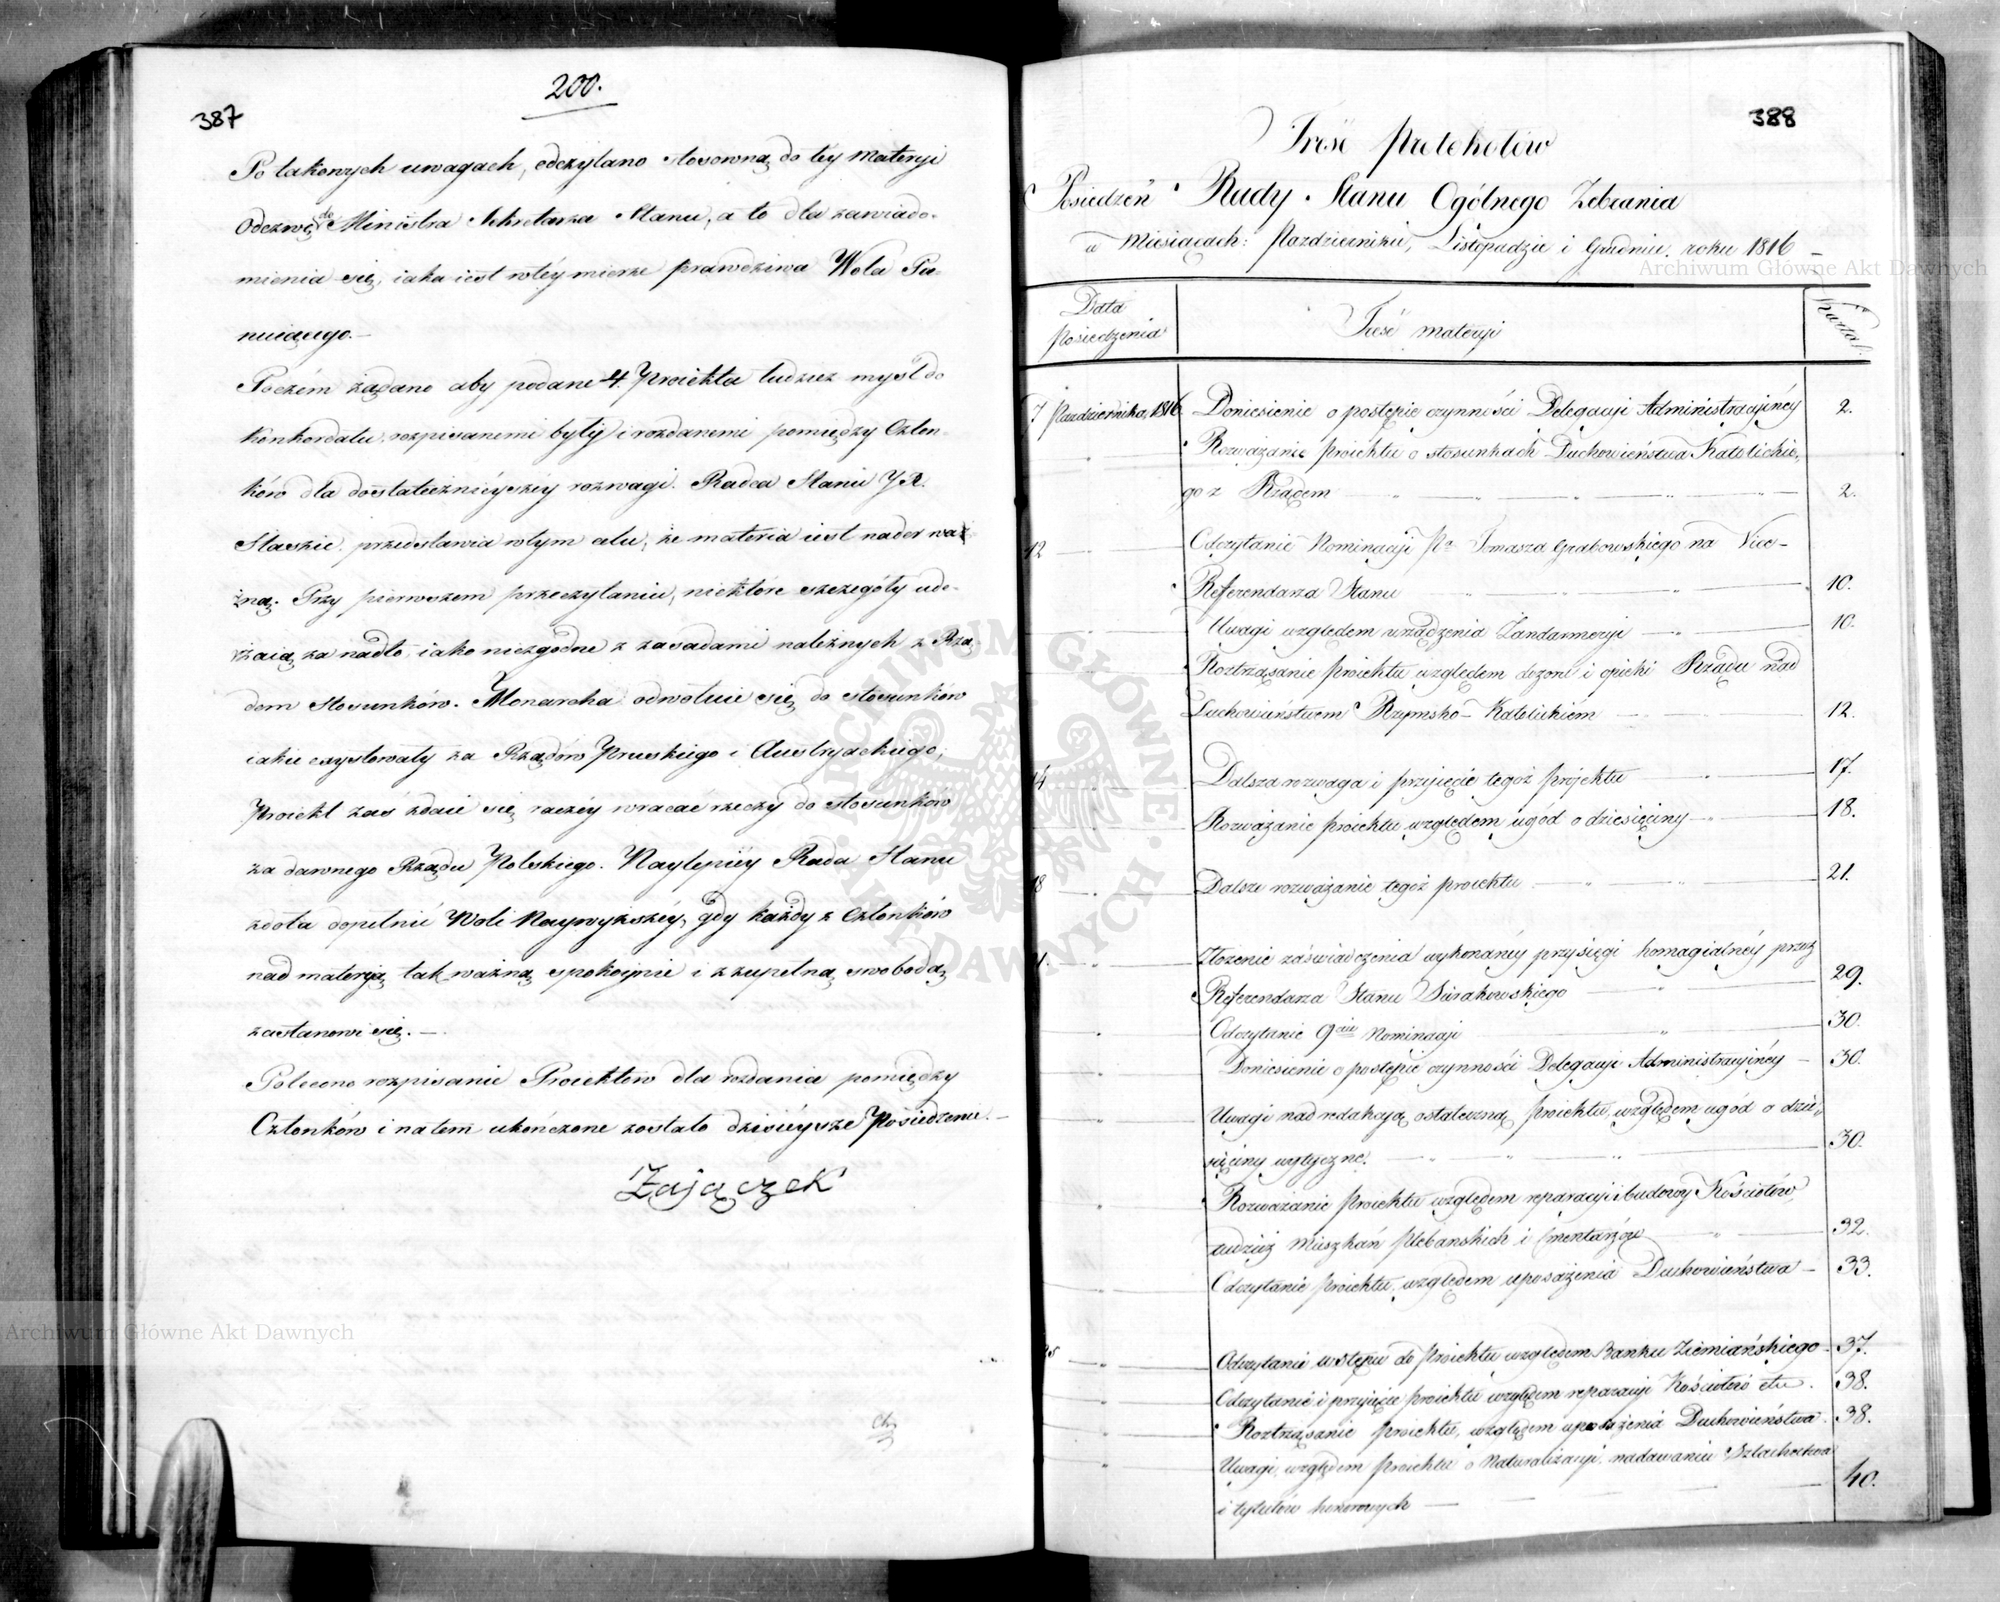 200.
387
Po takowych uwagach, odczytano stosowną do téy Materyi
Odezwę do Ministra Sekretarza Stanu, a to dla zawiado-
mienia się, iaka iest w téy mierze prawdziwa Wola Pa-
nuiącego.—
Poczém żądano aby podane 4. Proiekta tudzież myśl do
Konkordatu, rozpisanemi były i rozdanemi pomiędzy Człon-
ków dla dostateczniéyszey rozwagi. Radca Stanu
Staszic przedstawia w tym celu, że materia iest nader waż-
żną. Przy pierwszem przeczytaniu, niektóre szczegóły ude-
rzaią za nadto, iako niezgodne z zasadami należnych z Rzą-
dem Stosunków. Monarcha odwołuie się do stosunków
iakie exystowały za Rządów Pruskiego i Austryackiego;
Proiekt zaś zdaie się raczéy wracać rzeczy do stosunków
za dawnego Rządu Polskiego. Naylepiéy Rada Stanu
zdoła dopełnić Woli Naywyższéy, gdy każdy z Członków
nad materyą tak ważną spokoynie i z zupełną swobodą
zastanowi się.—
Polecono rozpisanie Proiektów dla rozdania pomiędzy
Członków i na tem ukończone zostało dzisiéysze Posiedzenie.—
Zajączek
388
Treść Protokołów
Posiedzeń Rady Stanu Ogólnego Zebrania
w Miesiącach: Pazdzierniku, Listopadzie i Grudniu roku 1816 —
Data posiedzenia Treść materyi Karta
7 Pazdziernika 1816 Doniesienie o postępie czynności Delegacyi Administracyinéy 2.
Rozważanie proiektu o stosunkach Duchowieństwa Katolickie-
go z Rządem 2.
12 Odczytanie Nominacyi Pa Tomasza Grabowskiego na Vice-
Referendarza Stanu 10.
Uwagi względem urządzenia Żandarmeryi 10.
Roztrząsanie proiektu względem dozoru i opieki Rządu nad
Duchowieństwem Rzymsko-Katolickiém 12.
14 Dalsza rozwaga i przyięcie tegoż projektu 17.
Rozważanie proiektu względem ugod o dziesięciny 18.
18 Dalsze rozważanie tegoż proiektu 21.
Złożenie zaświadczenia wykonanéy przysięgi homagialnéy przez
Referendarza Stanu Surakowskiego 29.
Odczytanie 9ciu Nominacyi 30.
Doniesienie o postępie czynności Delegacyi Administracyinéy — 30.
Uwagi nad redakcyą ostateczną proiektu względem ugód o dzie-
sięciny wytyczne. 30.
Rozważanie proiektu względem reparacyi i budowy Kościołów,
tudzież mieszkań plebańskich i Cmentarzów 32.
Odczytanie proiektu względem uposażenia Duchowieństwa — 33.
Odczytanie wstępu do proiektu względem Banku Ziemiańskiego 37.
Odczytanie i przyięcie proiektu względem reparacyi Kościołów etc. 38.
Roztrząsanie proiektu, względem uposażenia Duchowieństwa 38.
Uwagi względem proiektu o Naturalizacyi, nadawaniu Szlachectwa
i tytułów honorowych — 40.
Archiwum Główne Akt Dawnych
Archiwum Główne Akt Dawnych
ARCHIWUM GŁÓWNE AKT DAWNYCH